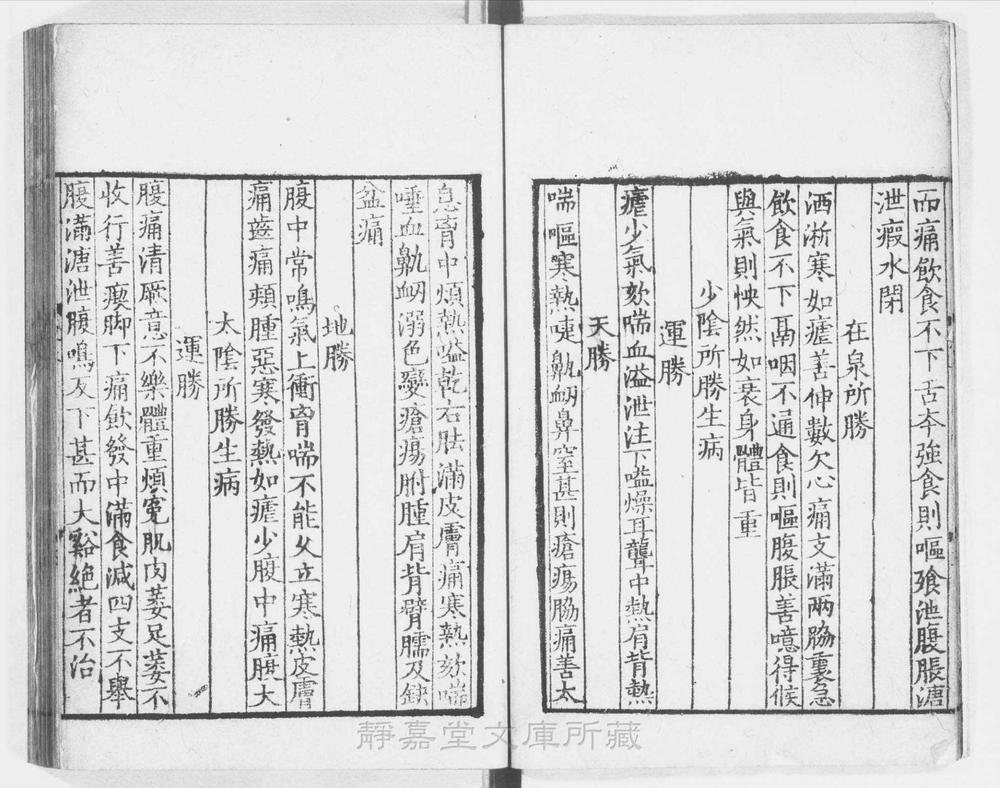 而痛飲食不下舌本強食則嘔飱泄腹脹溏
泄瘕水閉
在泉所勝
洒淅寒如瘧善伸數欠心痛支滿兩脇裏急
飲食不下鬲咽不通食則嘔腹脹善噫得候
與氣則怏然如衰身體皆重
少陰所勝生病
運勝
瘧少氣欬喘血溢泄注下嗌燥耳聾中熱肩背熱
天勝
喘嘔寒熱嚏鼽衄鼻窒甚則瘡瘍脇痛善太
息胷中煩熱嗌乾右胠滿皮膚痛寒熱欬喘
唾血鼽衄溺色變瘡瘍胕腫肩背臂臑及缺
盆痛
地勝
腹中常鳴氣上衝胷喘不能久立寒熱皮膚
痛齒痛䪼腫惡寒發熱如瘧少腹中痛腹大
太陰所勝生病
運勝
腹痛清厥意不樂體重煩寃肌肉萎足萎不
收行善瘈脚下痛飲發中滿食減四支不舉
腹滿溏泄腹鳴反下甚而大谿絶者不治
靜嘉堂文庫所藏